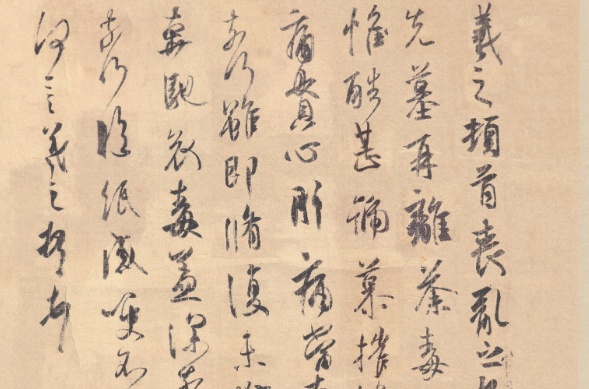 羲之頓首喪亂之
先墓再離荼毒
惟酷甚號慕摧
痛貫心肝痛當奈
奈何雖即脩復未
奔馳哀毒益深奈
奈何臨紙感哽不
何言羲之頓首